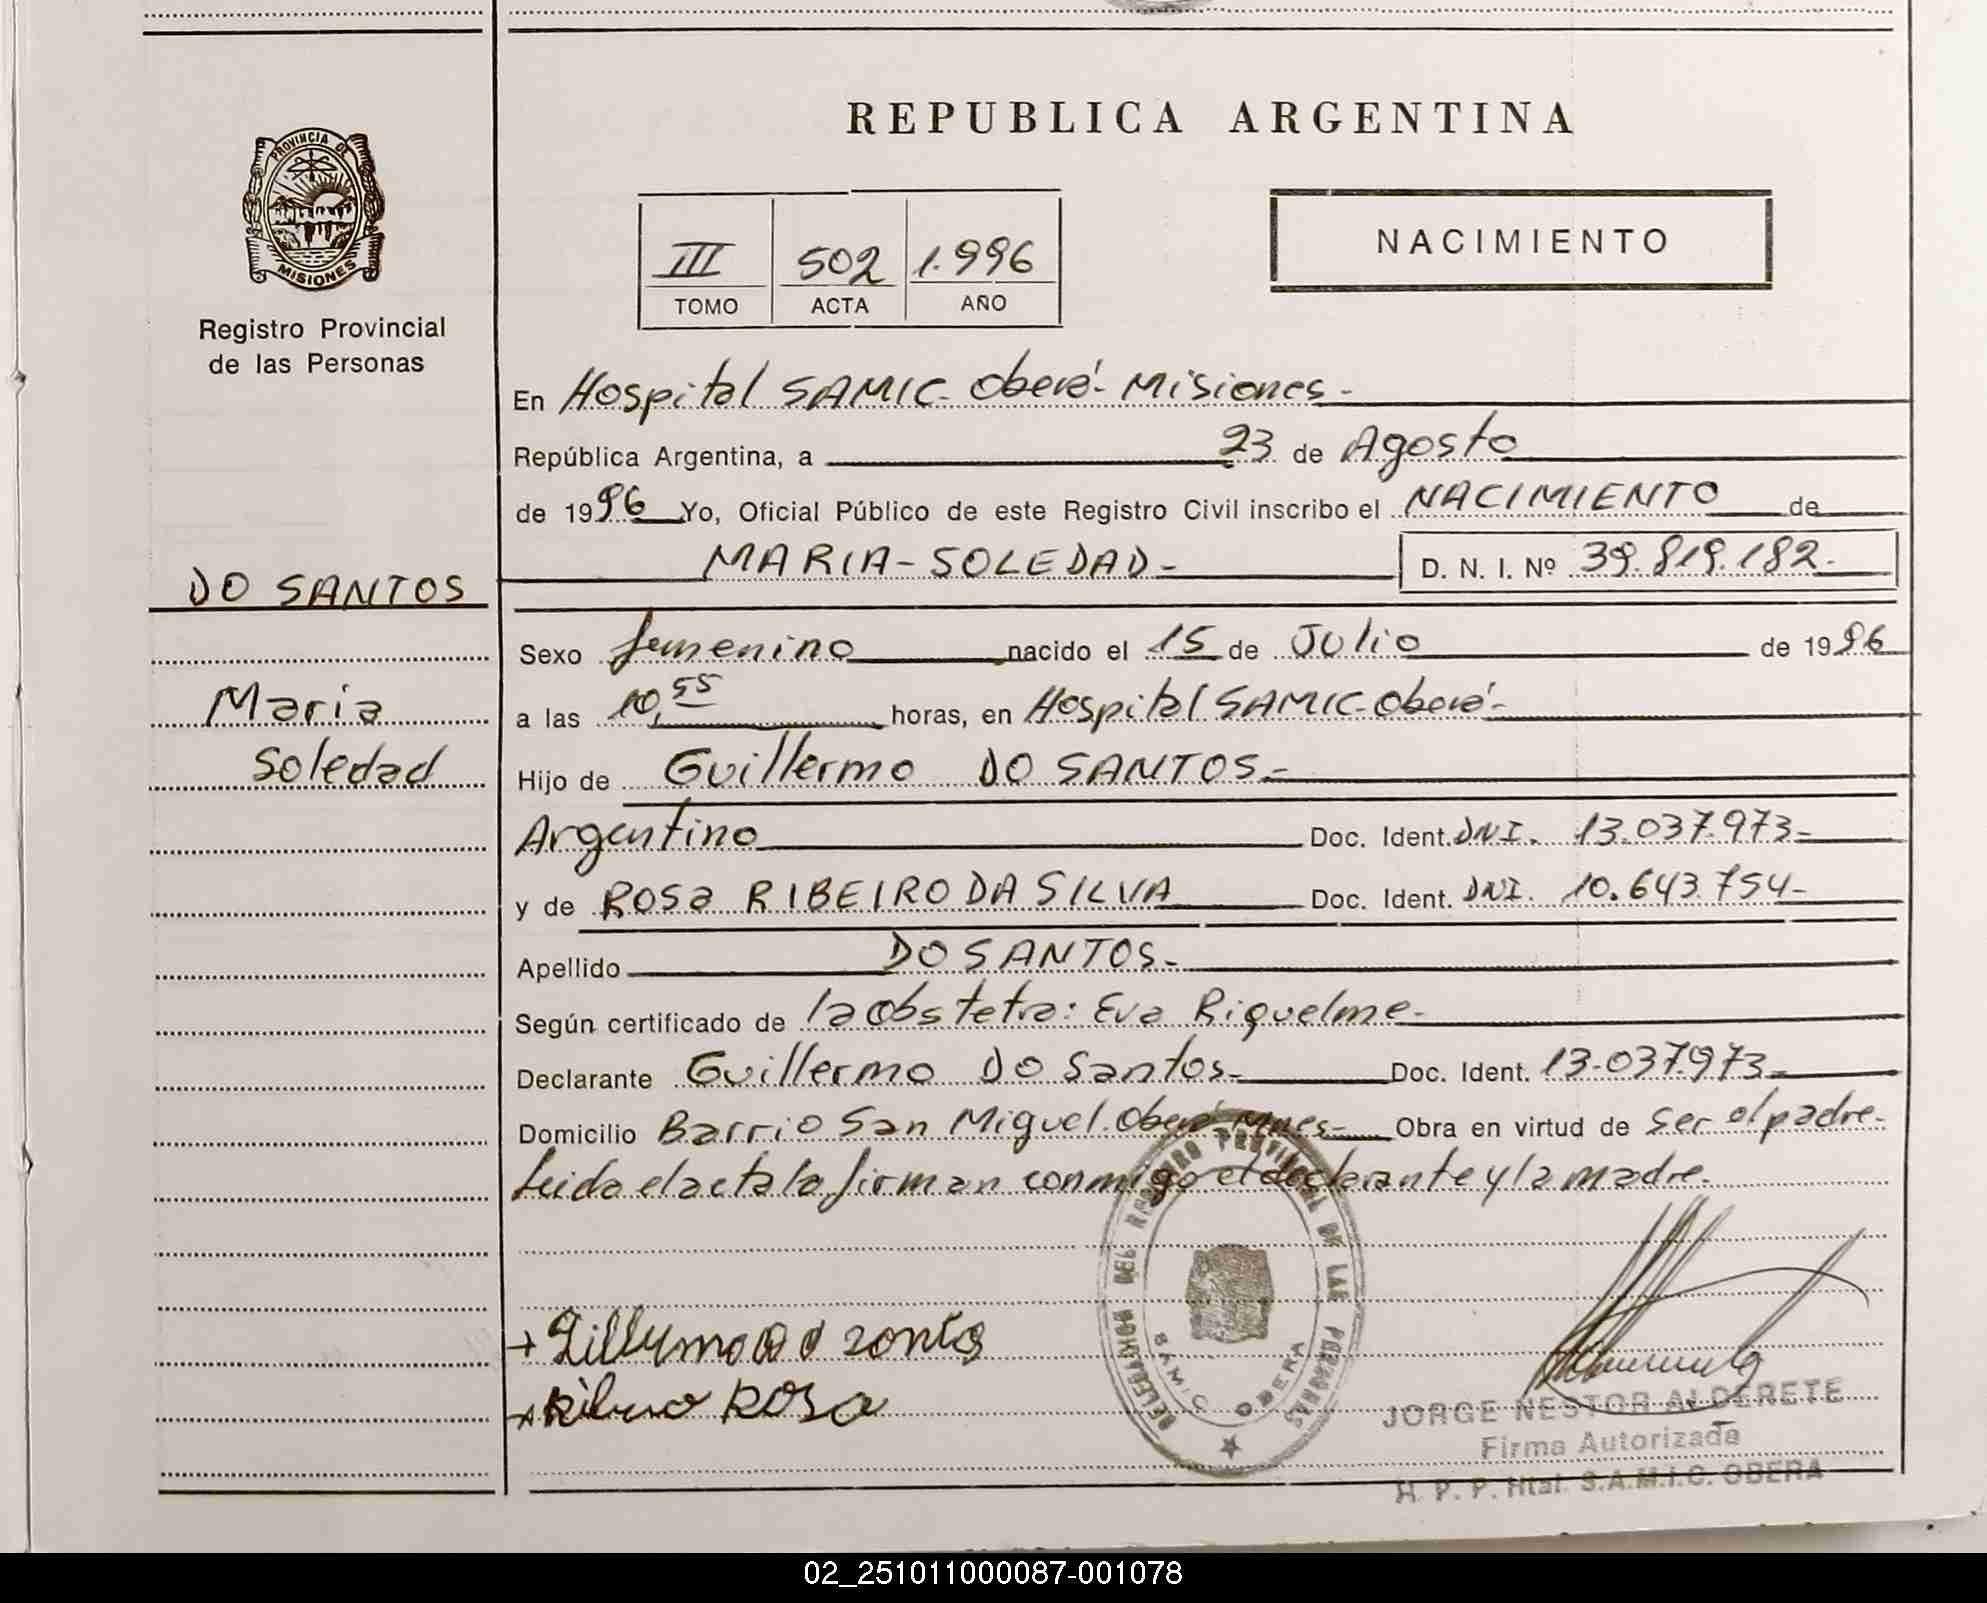 REPUBLICA ARGENTINA
PROVINCIA DE
MISIONES
Registro Provincial
de las Personas
III 502 1.996
TOMO ACTA AÑO
NACIMIENTO
En Hospital SAMIC- Oberá- Misiones-
República Argentina, a 23 de Agosto
de 1996 Yo, Oficial Público de este Registro Civil inscribo el NACIMIENTO de
MARIA-SOLEDAD- D. N. I. Nº 39.819.182-
DO SANTOS
Sexo femenino nacido el 15 de Julio de 1996
Maria
a las 10,55 horas, en Hospital SAMIC-Oberá-
Soledad
Hijo de Guillermo DO SANTOS-
Argentino Doc. Ident. DNI. 13.037.973-
y de ROSa RIBEIRO DA SILVA Doc. Ident. DNI. 10.643.754-
Apellido DO SANTOS-
Según certificado de la Obstetra: Eva Riquelme-
Declarante Guillermo DO Santos- Doc. Ident. 13.037.973-
Domicilio Barrio San Miguel. Oberá Mnes- Obra en virtud de ser el padre-
Leida el acta la firman conmigo el declarante y la madre.
REGISTRO PROVINCIAL DE LAS PERSONAS
DELEGACION DEL
SAMIC OBERA
Rosa
JORGE NESTOR ALDERETE
Firma Autorizada
H. P. P. Htal. S.A.M.I.C. OBERA
02_251011000087-001078